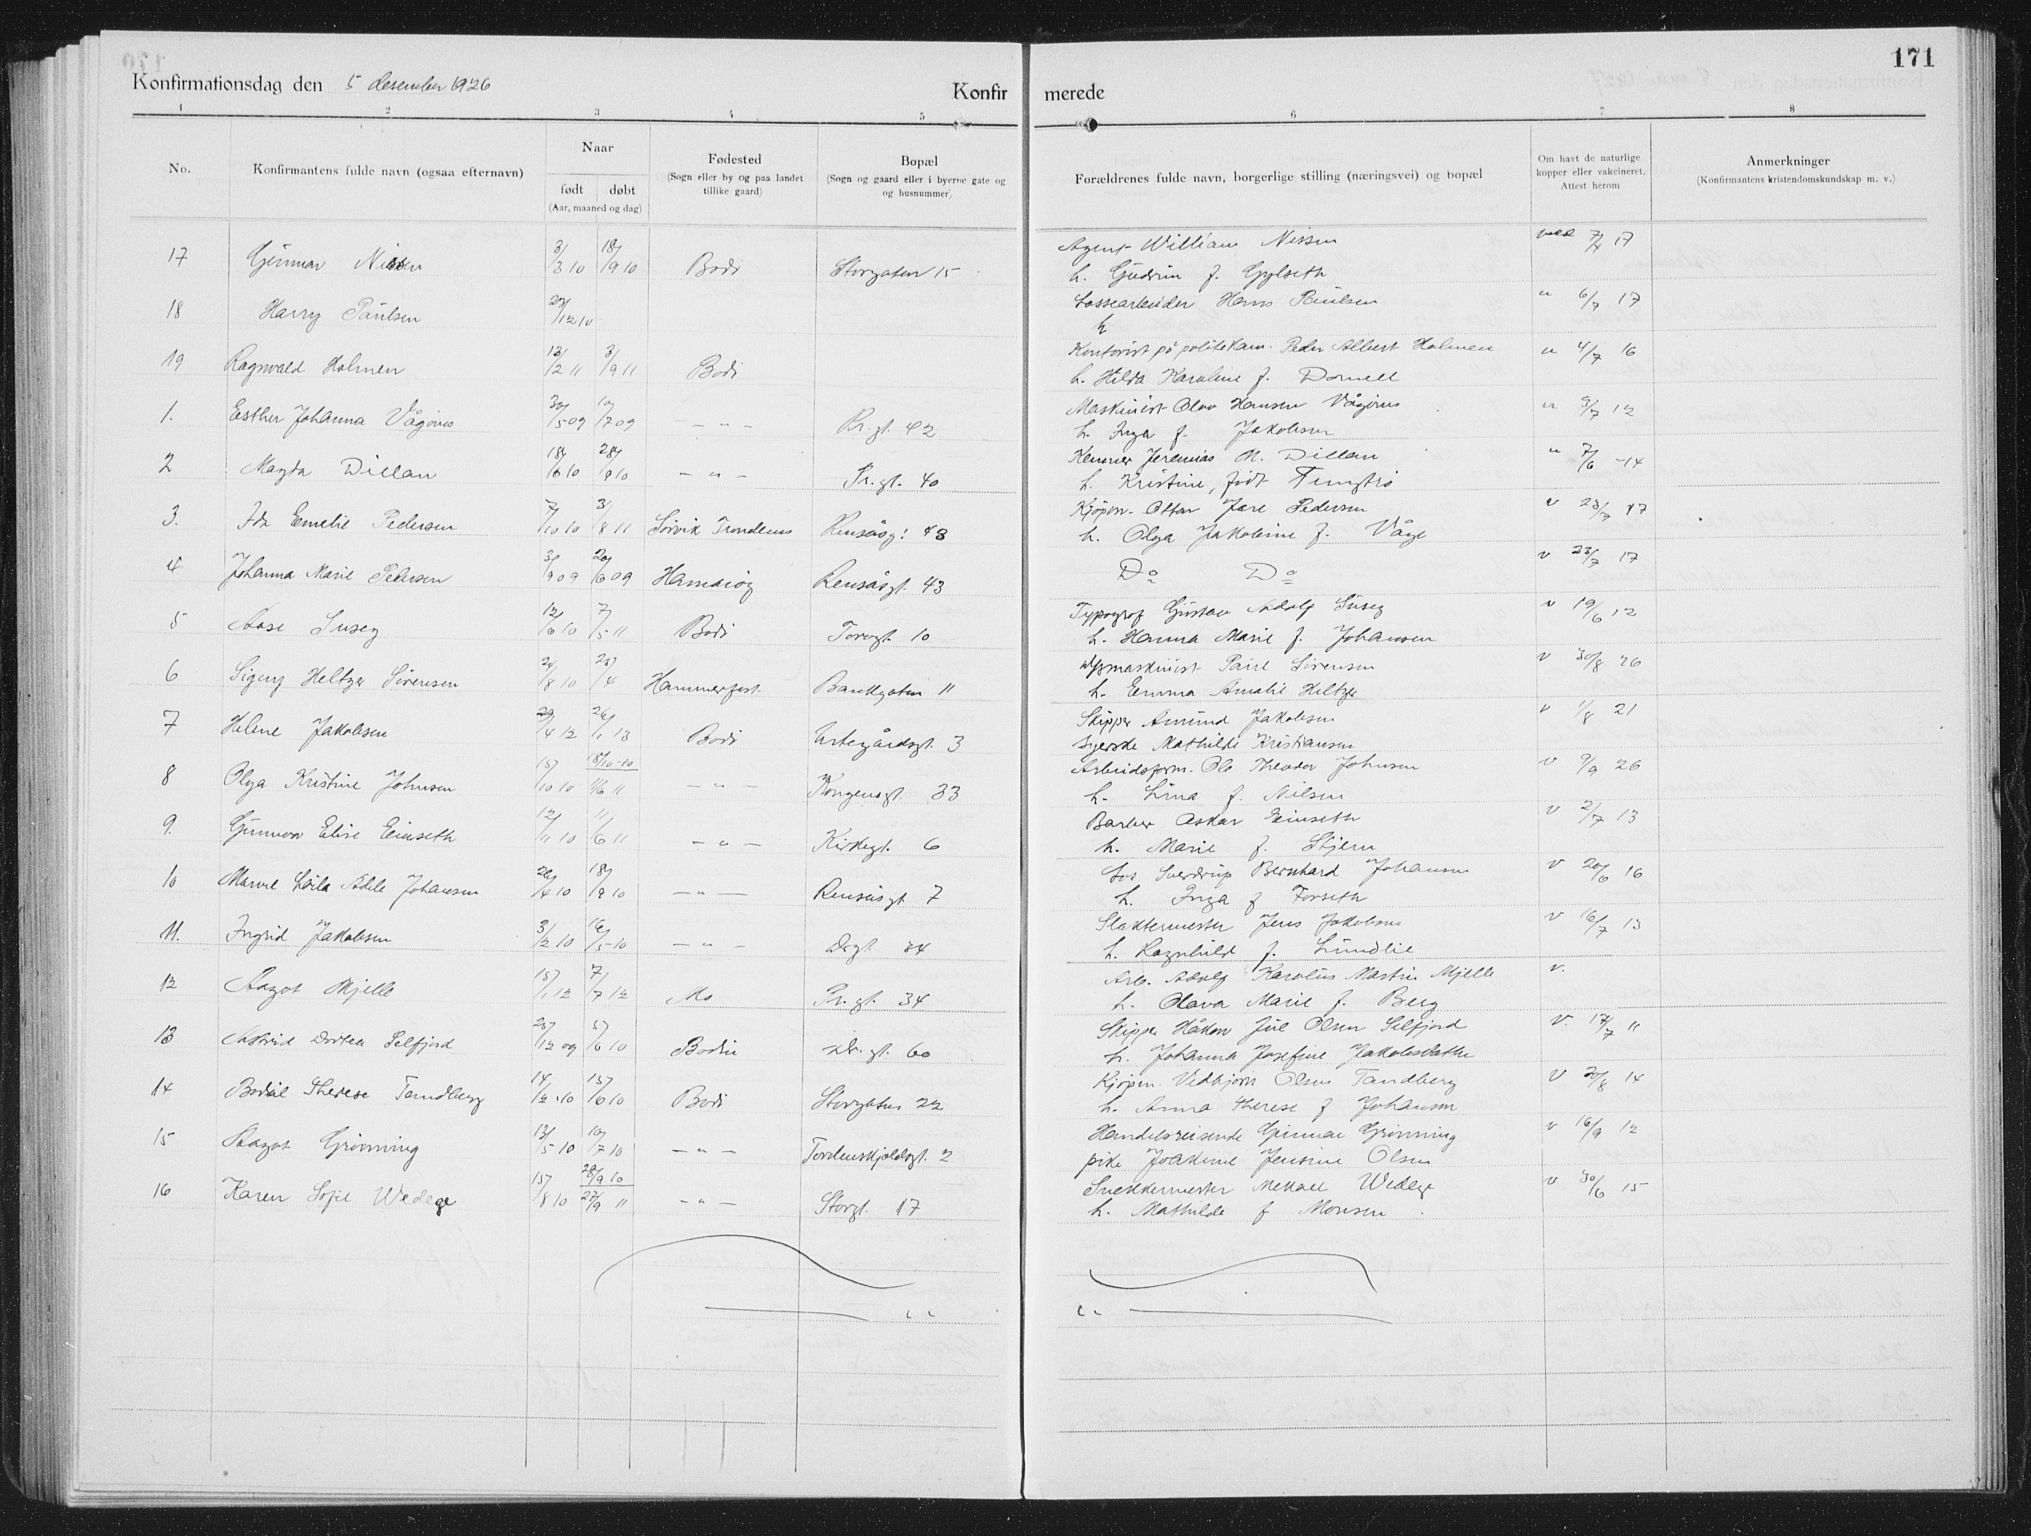 171
Konfirmationsdag den 5 desember 1926
Konfir merede
1 2 3 4 5 6 7 8
No.
Konfirmantens fulde navn (ogsaa efternavn)
Naar
født døbt
(Aar, maaned og dag)
Fødested
(Sogn eller by og paa landet
tillike gaard)
Bopæl
(Sogn og gaard eller i byerne gate og
og husnummer)
Forældrenes fulde navn, borgerlige stilling (næringsvei) og bopæl
Om havt de naturlige
kopper eller vakcineret.
Attest herom
Anmerkninger
(Konfirmantens kristendomskundskap m. v.)
17 Gunnar Nissen 3/3 10 18/9 10 Bodø Storgaten 15 Agent William Nissen 7/7 17
h. Gudrun f. Gylseth
18 Harry Paulsen /12 10 Lossearbeider Hans Paulsen " 6/7 17
h
19 Ragnvald Holmen 13/2 11 3/9 11 Bodø Kontorist på politikam. Peder Albert Holmen " 4/7 16
h. Hilda Karoline f. Dornell
1. Esther Johanna Vågønes 30/5 09 10/7 09 — " — Pr. gt. 42 Maskinist Olav Hansen Vågønes " 3/7 12
h. Inga f. Jakobsen
2 Magda Dillan 18/6 10 28/9 10 — " — Pr. gt. 40 Kemner Jeremias M. Dillan " 7/6 -14
h. Kristine, født
3. Ida Emelie Pedersen 7/10 10 3/8 11 Sørvik Trondenes Rensåsg: 43 Kjøpm. Ottar Jære Pedersen v 23/7 17
h. Olga Jakobine f. Våge
4 Johanna Marie Pedersen /9 09 20/6 09 Hamarøy Rensåsgt. 43 Do Do v 23/7 17
5 Aase Suseg 12/6 10 7/5 11 Bodø Torvgt. 10 Typograf Gustav Adolf Suseg v 19/6 12
h. Hanna Marie f. Johansen
6 Signy Heltzer Sørensen 24/8 10 25/4 Hammerfest Bankgaten 11 Paul Sørensen v 30/8 26
h. Emma Amalie Heltzer
7 Helene Jakobsen 29/4 12 26/1 13 Bodø 3 Skipper Amund Jakobsen v 1/8 21
syerske Mathilde Kristiansen
8 Olga Kristine Johnsen 15/10 10 18/10-10 /6 11 — " — Kongensgt. 33 Arbeidsform. Ole Theodor Johnsen v 9/9 26
h. Lina f. Nilsen
9. Gunvor Elise Einseth 12/11 10 11/6 11 — " — Kirkegt. 6 Barber Oskar Einseth v 2/7 13
h. Marie f. Stjern
10 Laila Adele Johansen /4 10 18/9 10 — " — Rensåsgt 7 Los Sverdrup Bernhard Johansen v 20/6 16
h. Inga f Forseth
11. Ingrid Jakobsen 3/2 10 16/5-10 — " — Drgt. 34 Slaktermester Jens Jakobsen v 16/7 13
h. Ragnhild f. Lundlie
12 Aagot Mjelle 15/1 12 7/7 12 Mo Pr. gt. 34 Arb. Adolf Karolius Martin Mjelle v.
h. Olava Marie f. Berg
13 Astrid Dortea Selfjord 25/12 09 5/6 10 Bodin Dr. gt. 60 Skipper Håkon Jul Olsen Selfjord v. 17/7 11
h. Johanna Josefine Jakobsdatter
14 Bodil Therese Tandberg 14/2-10 15/6 10 Bodø Storgaten 22 Kjøpm. Vidbjørn Olsen Tandberg v 20/8 14
h. Anna Therese f Johansen
15 Aagot Grønning 13/5 10 10/7 10 — " — Tordenskjoldsgt. 2 Handelsreisende Gunnar Grønning v 16/9 12
pike Joakime Jensine Olsen
16 Karen Sofie Wedege 15/8 10 28/9 10 27/9 11 — " — Storgt. 17 Snekkermester Mekael Wedege v 30/6 15
h. Mathilde f Monsen